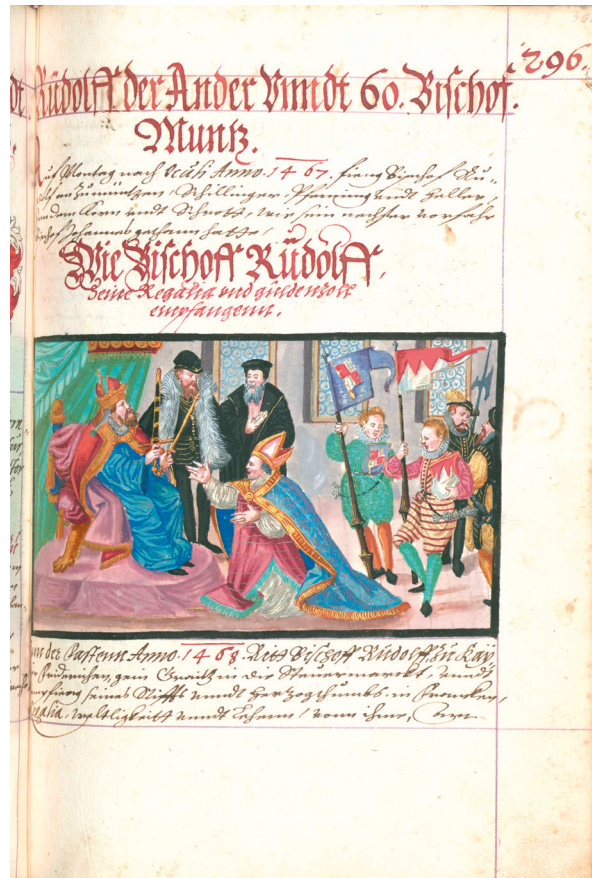 296.
Rüdolff der Ander Vnndt 60. Bischof.
Muntz.
Auf Montag nach Oculi Anno. 1467. fieng Bischof Ru-
dolf an zu müntzen, Schillinger, Pfenning vndt Heller,
dem Korn vndt Schrott, wie sein nechster vorfahr
Bischof Johannes gethann hatte,
Wie Bischoff Rüdolff,
Seine Regalia vnd güldenzoll
empfangenn.
In der Fastenn Anno. 1468. Ritt Bischoff Rudolff, zu Kay
Friderichen, gein Graitz in die Steuermarckt, vnndt
empfieng seines Stiffts vnndt Hertzogthumbs in Francken,
Regalia, weltligkeitt vnndt Lehenn, vonn ihme,